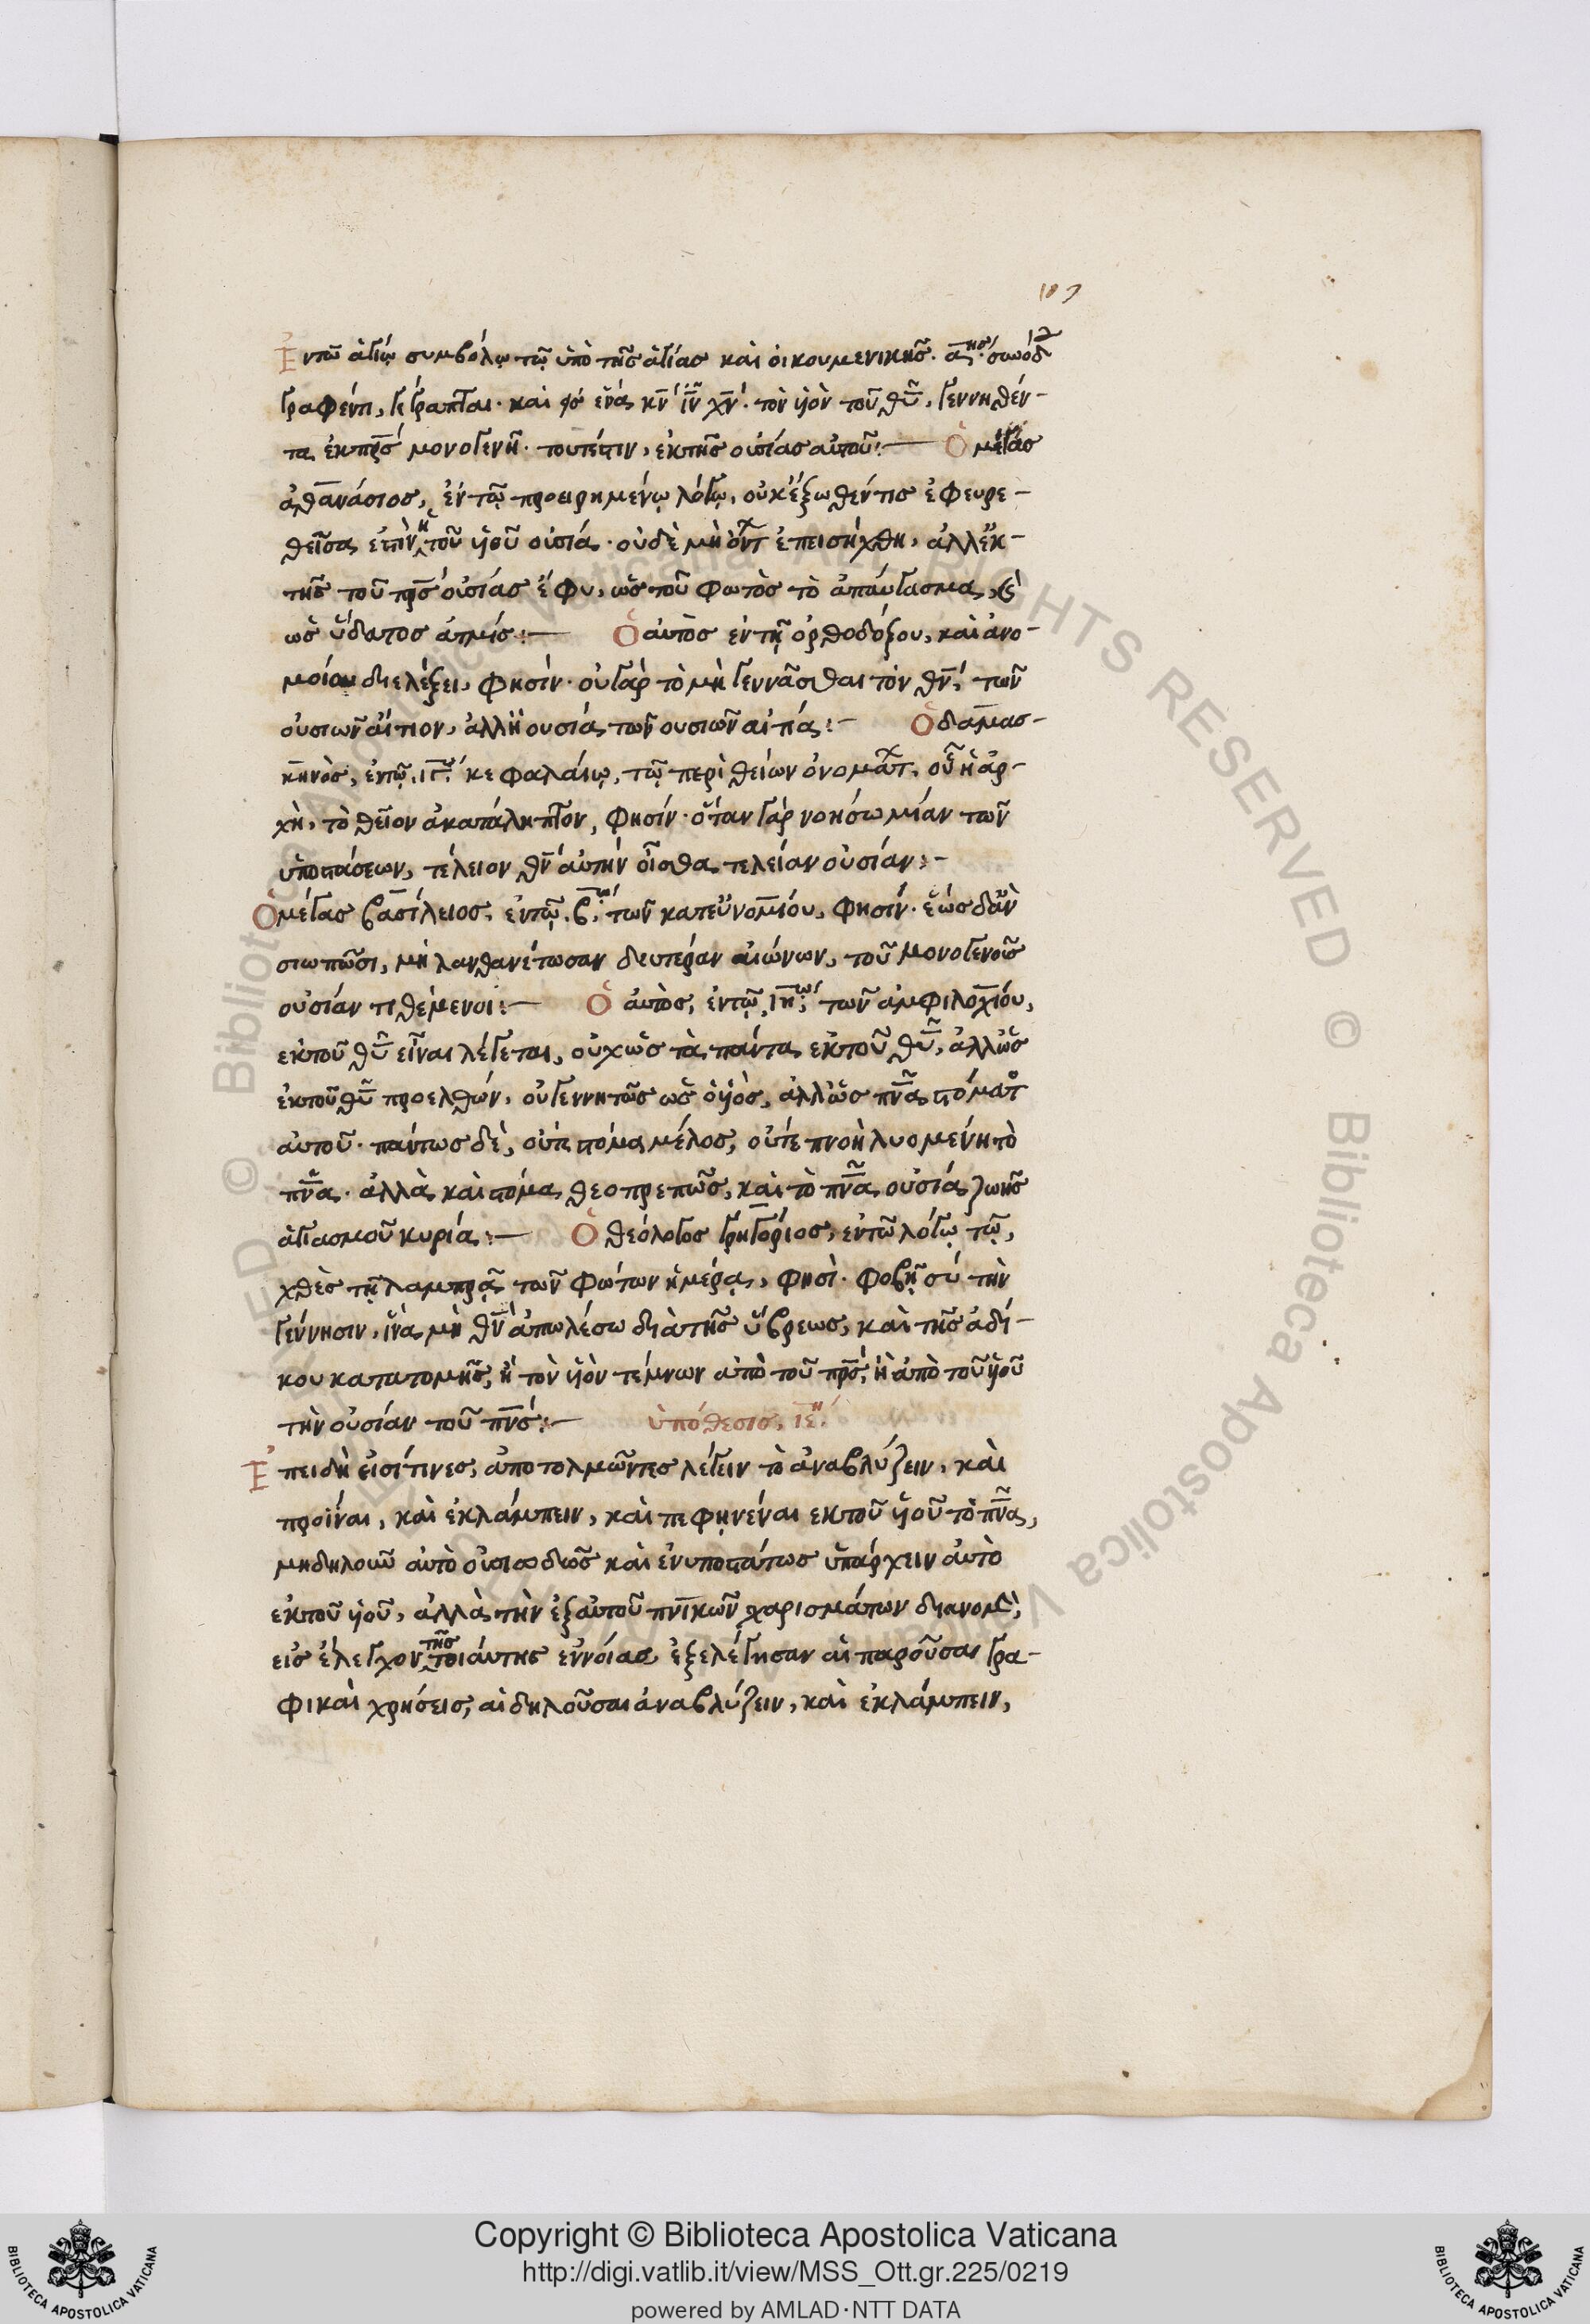 107
Ἐν τῶ ἁγίῳ συμβόλῳ τῷ ὑπὸ τῆς ἁγίας καὶ οἰκουμενικῆς. α̅ης συνόδ
γραφέντι, γέγραπται. καὶ εἰς ἕνα κν̅ ιν̅ χν̅. τὸν υἱὸν τοῦ θυ̅, γεννηθέν-
τα ἐκ πρς̅ μονογενῆ. τουτέστιν, ἐκ τῆς οὐσίας αὐτοῦ:— Ὁ μέγας
ἀθανάσιος, ἐν τῷ προειρημένῳ λόγῳ, οὐκ ἔξωθέν τις ἐφευρε-
θεῖσα ἐστὶν ἡ τοῦ υἱοῦ οὐσία. οὐδὲ μὴ ὄντ ἐπεισήχθη, ἀλλ' ἐκ-
τῆς τοῦ πρς̅ οὐσίας ἔφυ, ὡς τοῦ φωτὸς τὸ ἀπαύγασμα, καὶ
ὡς ὕδατος ἀτμίς:— Ὁ αὐτὸς ἐν τῇ ὀρθοδόξου, καὶ ἀνο-
μοίου διελέξει, φησίν. οὐ γὰρ τὸ μὴ γεννᾶσθαι τὸν θν̅, τῶν
οὐσιῶν αἴτιον, ἀλλ' ἡ ουσία τῶν ουσιῶν αἰτία:— Ὁ δαμασ-
κηνὸς, ἐν τῷ, ιγ̅ῳ κεφαλαίῳ, τῷ περὶ θείων ὀνομάτ, οὗ ἡ ἀρ-
χὴ, τὸ θεῖον ἀκατάληπτον, φησίν. ὅταν γὰρ νοήσω μίαν τῶν
ὑποστάσεων, τέλειον θν̅ αὐτὴν οἶσθα τελείαν οὐσίαν:—
Ὁ μέγας βασίλειος, ἐν τῷ, β̅ῳ, τῶν κατ' εὐνομίου, φησίν. ἕως δ' ἂν
σιωπῶσι, μὴ λανθανέτωσαν δευτέραν αἰώνων, τοῦ μονογενοῦς
οὐσίαν τιθέμενοι:— Ὁ αὐτὸς, ἐν τῷ, ιη̅ῳ, τῶν ἀμφιλοχίου,
ἐκ τοῦ θυ̅ εἶναι λέγεται, οὐχ ὡς τὰ πάντα ἐκ τοῦ θυ̅, ἀλλ' ὡς
ἐκ τοῦ θυ̅ προελθών, οὐ γεννητῶς ὡς ὁ υἱὸς, ἀλλ' ὡς πνα̅ στόματ
αὐτοῦ. πάντως δὲ, οὔτε στόμα μέλος, οὔτε πνοὴ λυομένη τὸ
πνα̅. ἀλλὰ καὶ στόμα θεοπρεπῶς, καὶ τὸ πνα̅ οὐσία ζωῆς
ἁγιασμοῦ κυρία:— Ὁ θεόλογος γρηγόριος, ἐν τῶ λόγῳ τῷ,
χθὲς τῇ λαμπρᾷ τῶν φώτων ἡμέρᾳ, φησὶ. φοβῇ σύ τὴν
γέννησιν, ἵνα μὴ θν̅ ἀπωλέσω διὰ τῆς ὕβρεως, καὶ τῆς ἀδί-
κου κατατομῆς, ἢ τὸν υἱὸν τέμνων ἀπὸ τοῦ πρς̅, ἢ ἀπὸ τοῦ υἱοῦ
τὴν οὐσίαν τοῦ πνς̅:— ὑπόθεσις, ιε̅η.
Ἐπειδὴ εἰσί τινες, ἀποτολμῶντες λέγειν τὸ ἀναβλύζειν, καὶ
προϊέναι, καὶ ἐκλάμπειν, καὶ πεφηνέναι ἐκ τοῦ υἱοῦ τὸ πνα̅,
μὴ δηλοῦν αὐτὸ οὐσιωδῶς καὶ ἐνυποστάτως ὑπάρχειν αὐτὸ
ἐκ τοῦ υἱοῦ, ἀλλὰ τὴν ἐξ αὐτοῦ πνικῶν χαρισμάτων διανομὴν,
εἰς ἔλεγχον τῆς τοιαύτης ἐννοίας, ἐξελέγησαν αἱ παροῦσαι γρα-
φικαὶ χρήσεις, αἱ δηλοῦσαι ἀναβλύζειν, καὶ ἐκλάμπειν,
Copyright © Biblioteca Apostolica Vaticana
http://digi.vatlib.it/view/MSS_Ott.gr.225/0219
powered by AMLAD·NTT DATA